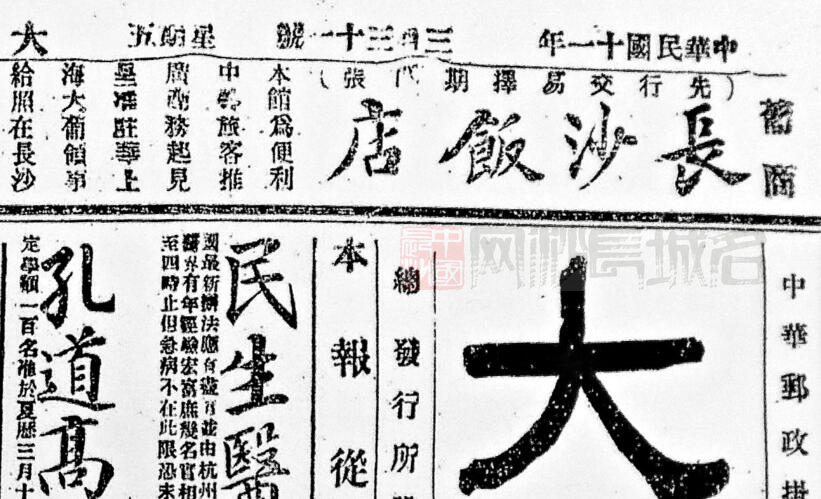 中華民國十一年三月三十一號 星期五 大
葡商
（先行交易擇期代張）
長沙飯店
本館爲便利
中外旅客推
廣商務起見
呈准駐華上
海大葡領事
給照在長沙
中華郵政掛
大
總發行所
本報從
民生醫
國最新辦法應有盡有並由杭州
醫界有年經驗宏富庶幾名實相
至四時止但急病不在此限恐未
孔道高
定學額一百名准於夏曆三月十
名城長沙网